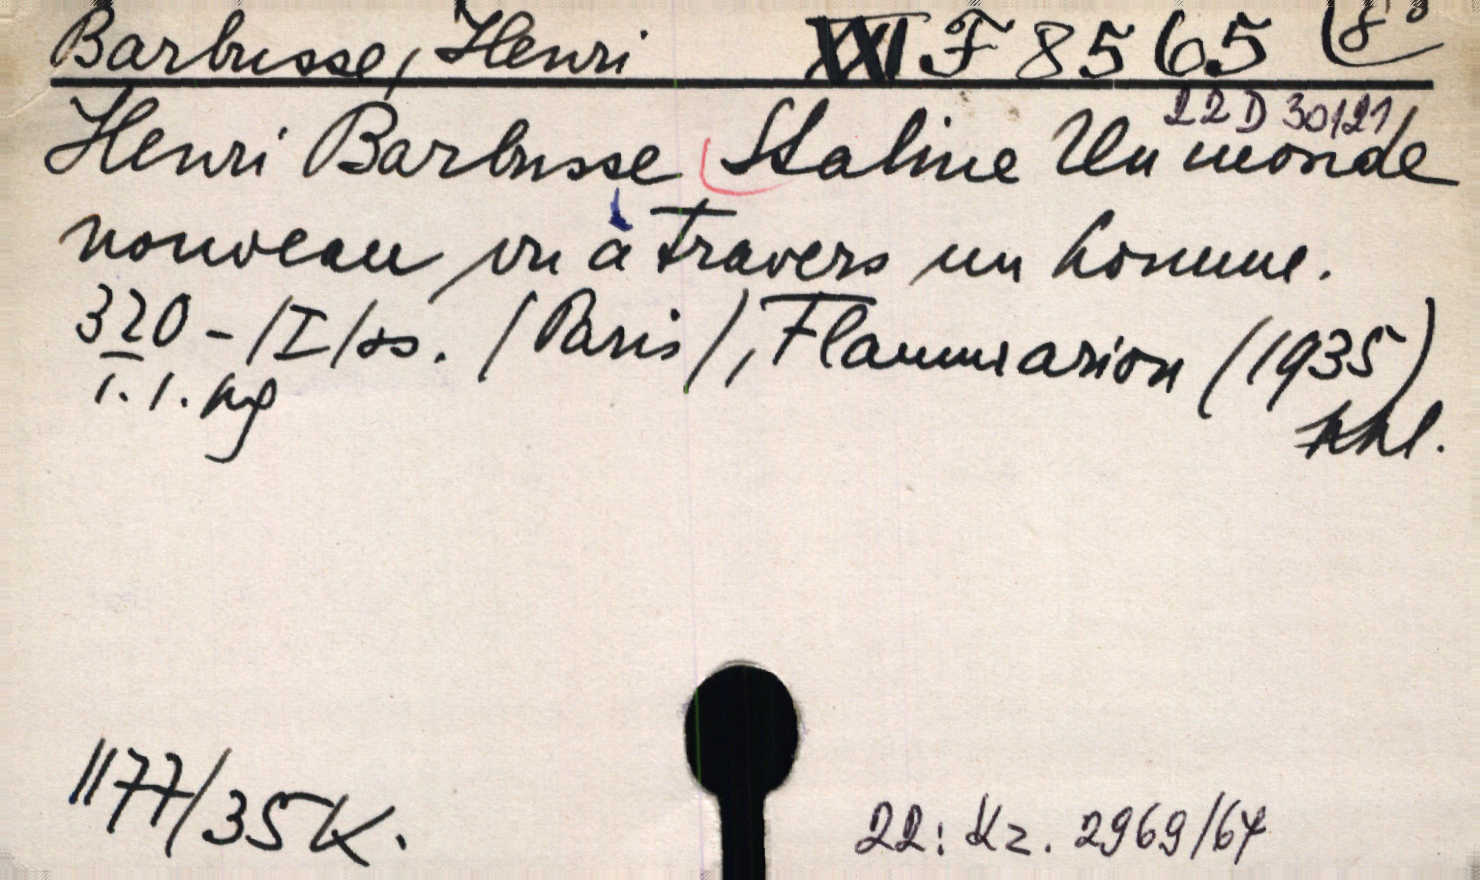 Barbusse, Henri XXI F 8565 8°
22 D 30121
Henri Barbusse Staline Un monde
nouveau vu à travers un homme.
320 - /I/ ss. /Paris/, Flammarion (1935)
1.1.
1177/35 K.
22: Kz. 2969/64